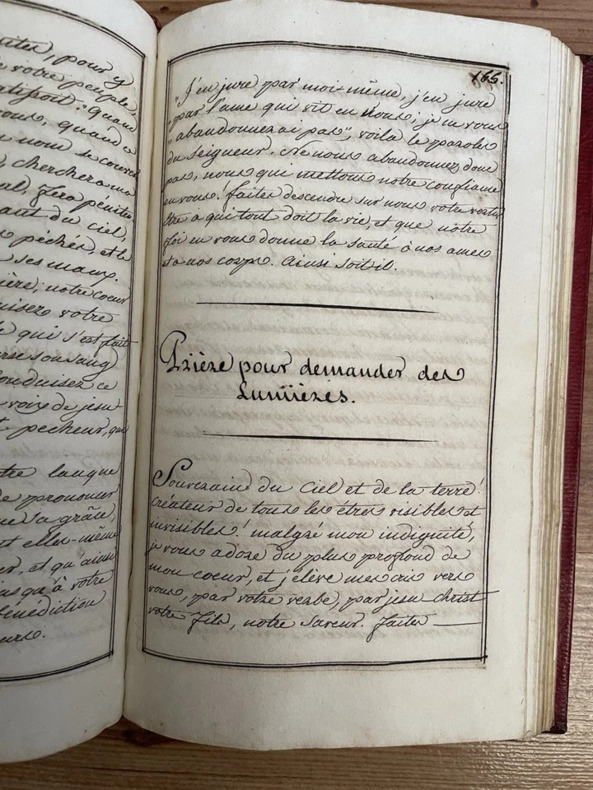 pour y
votre peuple,
quand ce
nom se couvre
cherchera ma
fera pénitence
du ciel,
péchés, et le
ses maux,
notre coeur
votre
qui s'est fait
son sang
Conduisez ce
voix de jesu
pecheur, que
langue
prononcer
sa grâce
elles-même
et qu'ainsi
qu'à votre
bénédiction
165.
"J'en jure par moi-même, j'en jure
"par l'ame qui vit en vous; je ne vous
"abandonnerai pas", voila la parole
du Seigneur. Ne nous abandonnez donc
pas, nous qui mettons notre confiance
en vous. faites descendre sur nous votre
être à qui tout doit la vie, et que nôtre
foi en vous donne la santé à nos ames
et à nos corps. ainsi soit il.
Prière pour demander des
Lumières.
Souverain du Ciel et de la terre!
Créateur de tous les êtres visibles et
invisibles! malgré mon indignité,
je vous adore du plus profond de
mon coeur, et j'élève mes cris vers
vous, par votre verbe, par jesu christ
votre fils, notre Saveur. faites